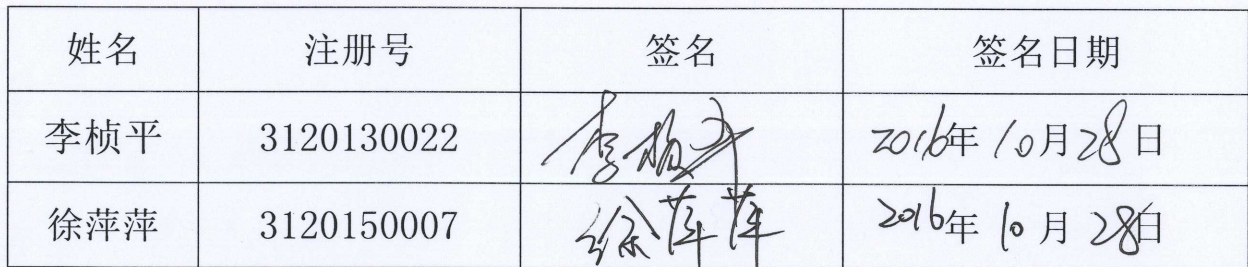 姓名 注册号 签名 签名日期
李桢平 3120130022 李桢平 2016年10月28日
徐萍萍 3120150007 徐萍萍 2016年10月28日